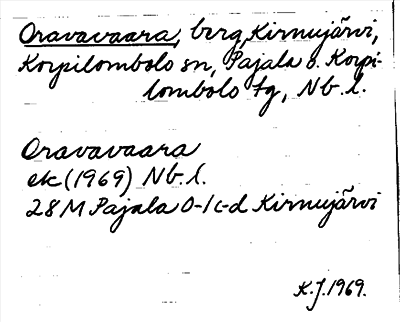 Oravavaara, berg, Kirnujärvi,
Korpilombolo sn, Pajala o. Korpi-
lombolo tg, Nb.l.
Oravavaara
ek (1969) Nb.l.
28M Pajala 0-1c-d Kirnujärvi
K.J. 1969.